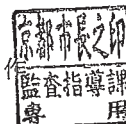 京都市長之印
作
監査指導課
専用